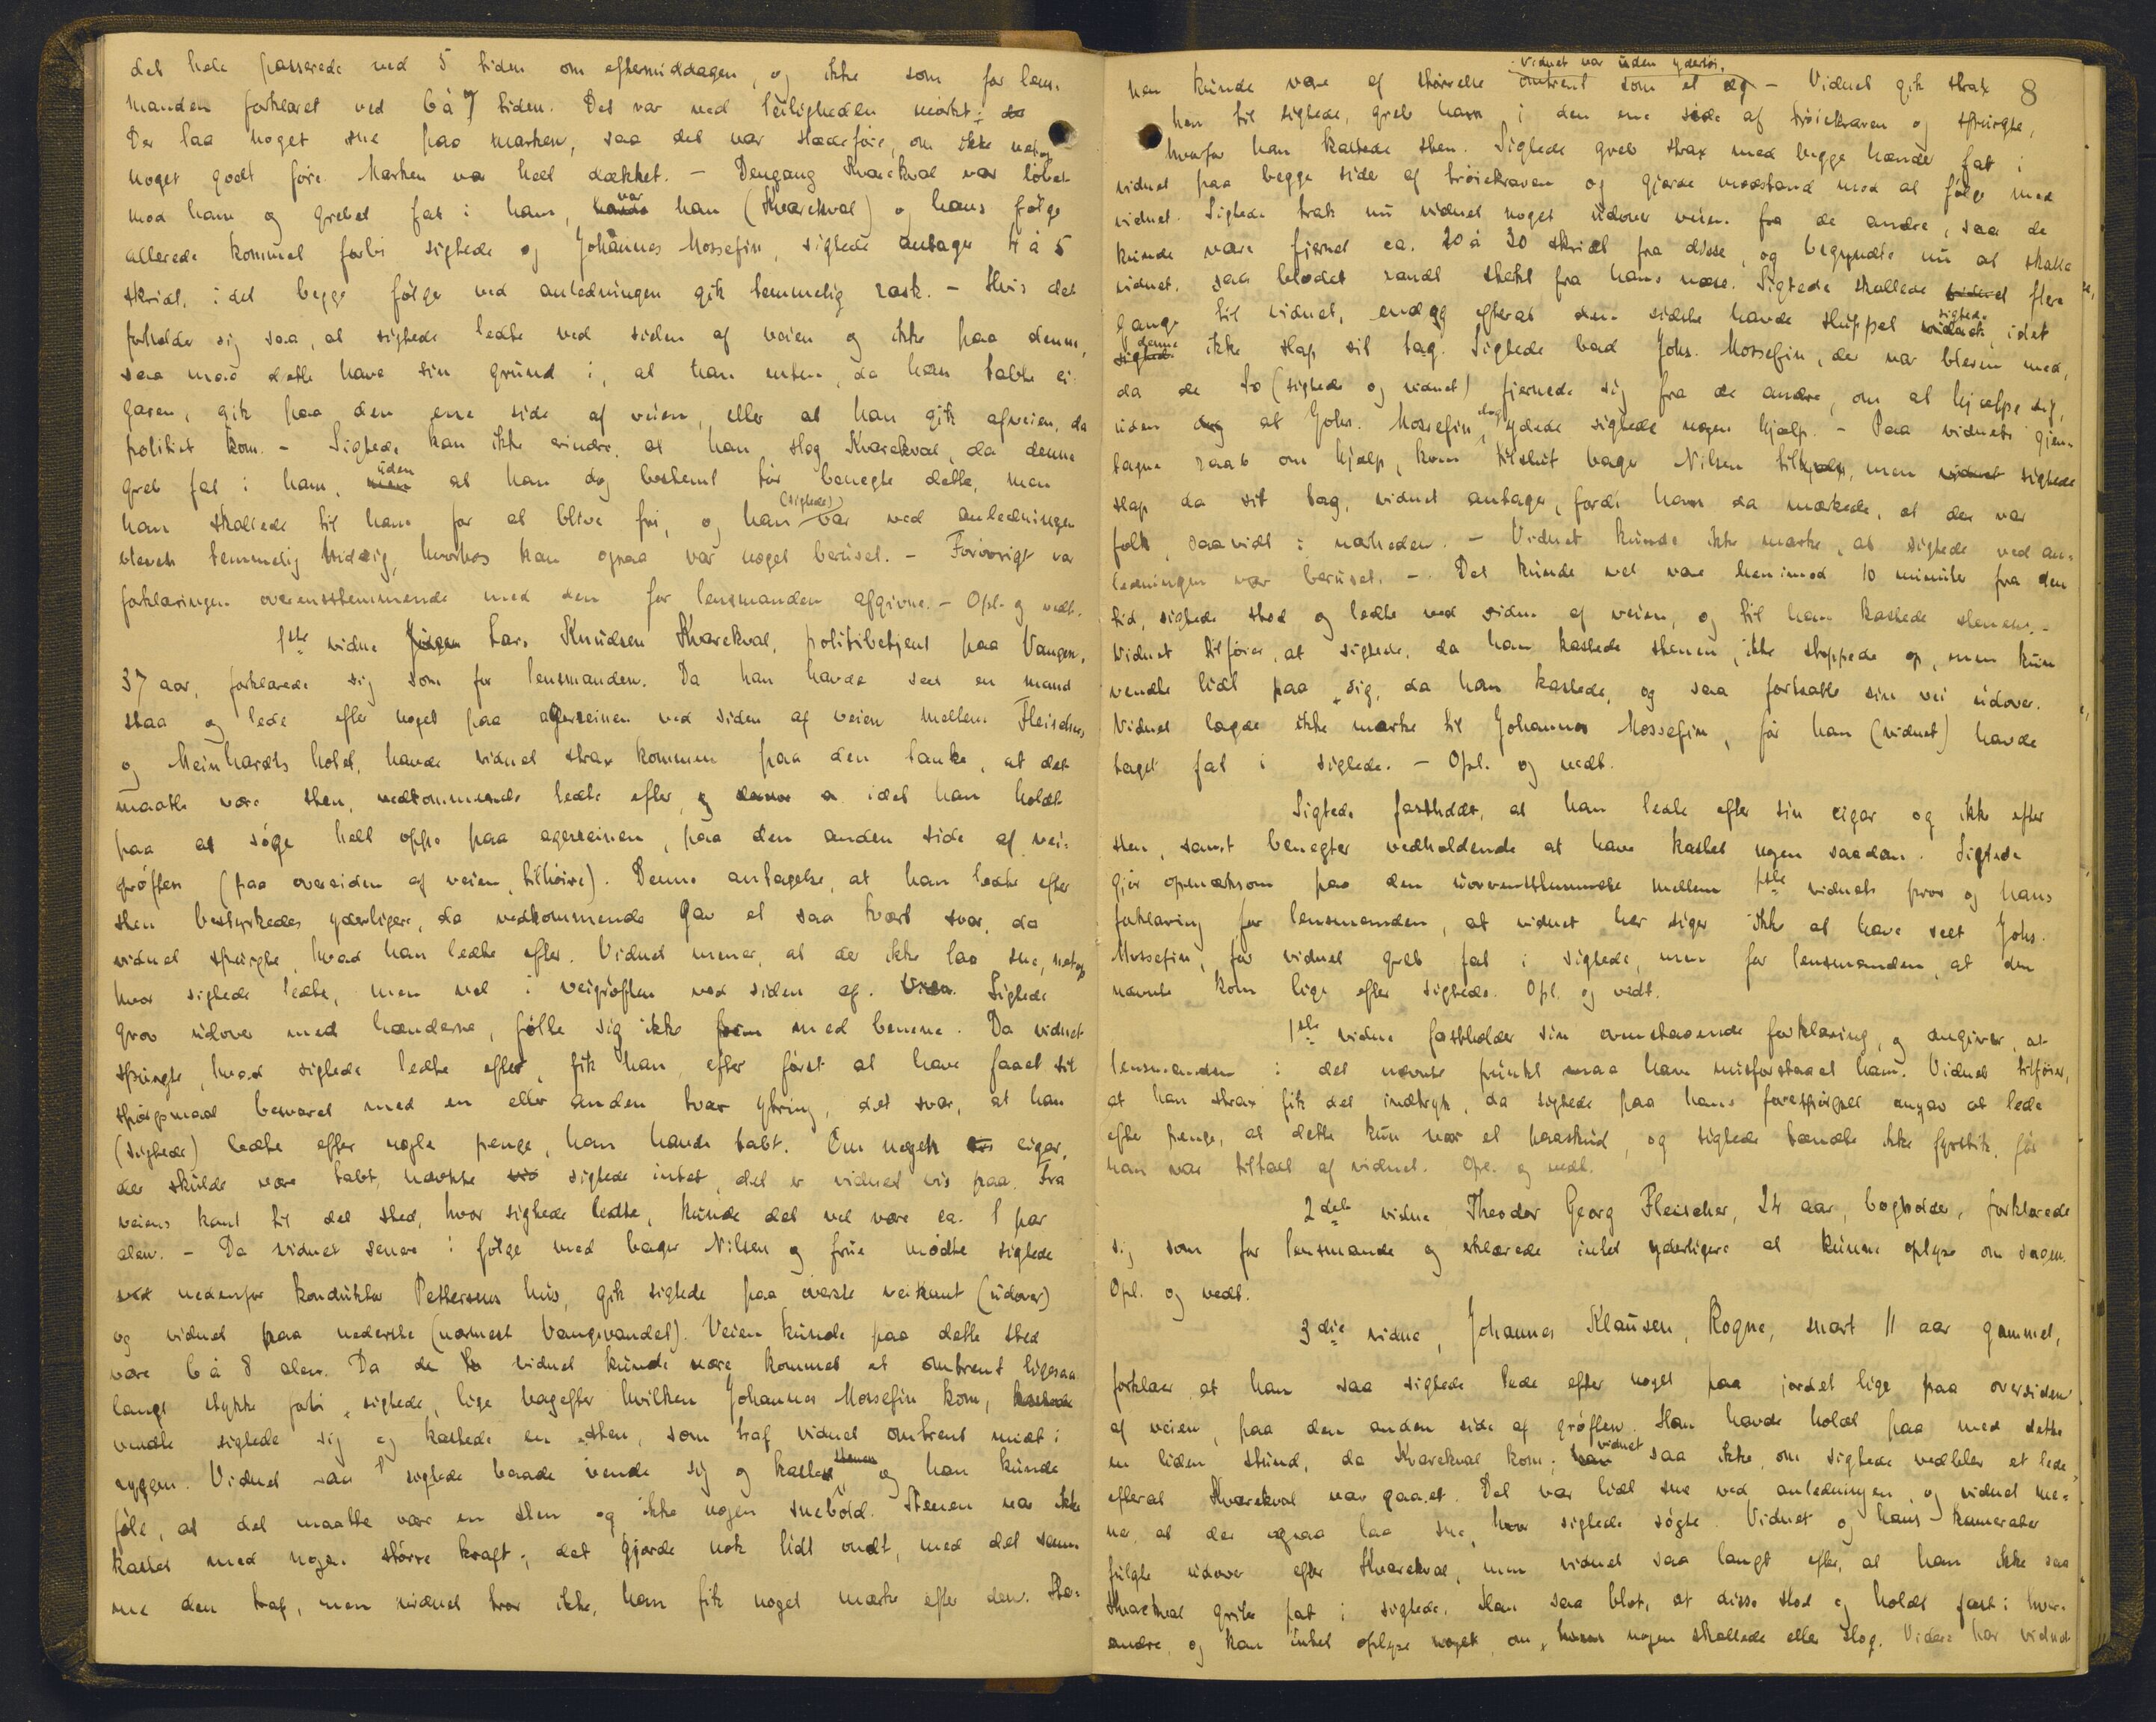 det hele passerede ved 5 tiden om eftermiddagen, og ikke som for lens-
manden forklaret ved 6 à 7 tiden. Det var ved leiligheden mørkt;
Der laa noget sne paa marken, saa det var slædeføre, om ikke netop
noget godt føre. Marken va helt dækket. – Dengang Kvarekval var løbet
mod ham og grebet fat i ham, var han (Kvarekval) og hans følge
allerede kommet forbi sigtede og Johannes Mossefin, sigtede antager 4 à 5
skridt, idet begge følge ved anledningen gik temmelig rask. – Hvis det
forholder sig saa, at sigtede ledte ved siden af veien og ikke paa denne,
saa maa dette have sin grund i, at han enten, da han tabte ci-
garen, gik paa den ene side af veien, eller at han gik afveien, da
politiet kom. – Sigtede kan ikke erindre, at han slog Kvarekval, da denne
greb fat i ham, uden at han dog bestemt tør benegte dette, men
han skallede til ham for at blive fri, og han (sigtede) var ved anledningen
bleven temmelig hidsig, hvorhos han ogsaa var noget beruset. – Forøvrigt va
forklaringen overensstemmende med den for lensmanden afgivne. – Opl. og vedt.
1ste vidne Lars Knudsen Kvarekval, politibetjent paa Vangen,
37 aar, forklarede sig som for lensmanden. Da han havde seet en mand
staa og lede efter noget paa agerreinen ved siden af veien mellem Fleischers
og Meinhardts hotel, havde vidnet strax kommen paa den tanke, at det
maatte være sten, vedkommende ledte efter, idet han holdt
paa at søge helt oppe paa agerreinen, paa den anden side af vei-
grøften (paa oversiden af veien, tilhøire). Denne antagelse, at han ledte efter
sten bestyrkedes yderligere, da vedkommende gav et saa tvært svar, da
vidnet spurgte, hvad han ledte efter. Vidnet mener, at der ikke laa sne, netop
hvor sigtede ledte, men vel i veigrøften ved siden af. Sigtede
grov udover med hænderne, følte sig ikke frem med benene. Da vidnet
spurgte, hvad sigtede ledte efter, fik han, efter først at have faaet sit
spørgsmaal besvaret med en eller anden tvær ytring, det svar, at han
(sigtede) ledte efter nogle penge, han havde tabt. Om nogen cigar,
der skulde være tabt, nævnte sigtede intet, det er vidnet vis paa. Fra
veiens kant til det sted, hvor sigtede ledte, kunde det vel være ca. 1 par
alen. – Da vidnet senere i følge med bager Nilsen og frue mødte sigtede
nedenfor konduktør Pettersens hus, gik sigtede paa øverste veikant (udover)
og vidnet paa nederste (nærmest Vangsvandet). Veien kunde paa dette sted
være 6 à 8 alen. Da de vidnet kunde være kommet et omtrent ligesaa
langt stykke forbi sigtede, lige bagefter hvilken Johannes Mossefin kom,
vendte sigtede sig og kastede en sten, som traf vidnet omtrent midt i
ryggen. Vidnet saa sigtede baade vende sig og kaste stenen og han kunde
føle, at det maatte være en sten og ikke nogen snebold. Stenen var ikke
kastet med nogen større kraft; det gjorde nok lidt ondt, med det samme
den traf, men vidnet tror ikke, han fik noget mærke efter den. Ste-
8
vidnet var uden ydertøi.
nen kunde være af størrelse omtrent som et æg – Vidnet gik strax
hen til sigtede, greb ham i den ene side af trøiekraven og spurgte,
hvorfor han kastede sten. Sigtede greb strax med begge hænder fat i
vidnet paa begge sider af trøiekraven og gjorde modstand mod at følge med
vidnet. Sigtede trak nu vidnet noget udover veien fra de andre, saa de
kunde være fjernet ca. 20 à 30 skridt fra disse, og begyndte nu at skalle
vidnet, saa blodet randt stærkt fra hans næse. Sigtede skallede flere
gange til vidnet, endog efterat den sidste havde sluppet sigtede, idet
denne ikke slap sit tag. Sigtede bad Johs. Mossefin, der var bleven med,
da de to (sigtede og vidnet) fjernede sig fra de andre, om at hjælpe sig,
uden at Johs. Mossefin dog ydede sigtede nogen hjælp. – Paa vidnets gjen-
tagne raab om hjælp, kom tilslut bager Nilsen tilhjælp, men sigtede
slap da sit tag, vidnet antager, fordi han da mærkede, at der var
folk, saavidt i nærheden. – Vidnet kunde ikke mærke, at sigtede ved an-
ledningen var beruset. – Det kunde vel være henimod 10 minuter fra den
tid, sigtede stod og ledte ved siden af veien, og til han kastede stenen. –
Vidnet tilføier, at sigtede, da han kastede stenen, ikke stoppede op, men kun
vendte lidt paa sig, da han kastede, og saa fortsatte sin vei udover.
Vidnet lagde ikke mærke til Johannes Mossefin, før han (vidnet) havde
taget fat i sigtede. – Opl. og vedt.
Sigtede fastholdt, at han ledte efter sin cigar og ikke efter
sten, samt benegter vedholdende at have kastet nogen saadan. Sigtede
gjør opmærksom paa den uoverensstemmelse mellem 1ste vidnets prov og hans
forklaring for lensmanden, at vidnet her siger ikke at have seet Johs.
Mossefin, før vidnet greb fat i sigtede, men for lensmanden, at den
nævnte kom lige efter sigtede. Opl. og vedt.
1ste vidne fastholder sin ovenstaaende forklaring, og angiver, at
lensmanden i det nævnte punkt maa have misforstaaet ham. Vidnet tilføier,
at han strax fik det indtryk, da sigtede paa hans forespørgsel angav at lede
efter penge, at dette kun var et paaskud, og sigtede tændte ikke fyrstik, før
han var tiltalt af vidnet. Opl. og vedt.
2det vidne Theodor Georg Fleischer, 24 aar, bogholder, forklarede
sig som for lensmanden og erklærede intet yderligere at kunne oplyse om sagen.
Opl. og vedt.
3die vidne, Johannes Klausen, Rogne, snart 11 aar gammel,
forklarer at han saa sigtede lede efter noget paa jordet lige paa oversiden
af veien, paa den anden side af grøften. Han havde holdt paa med dette
en liden stund, da Kvarekval kom; vidnet saa ikke, om sigtede vedblev at lede,
efterat Kvarekval var gaaet. Det var lidt sne ved anledningen, og vidnet me-
ner, at der ogsaa laa sne, hvor sigtede søgte. Vidnet og hans kamerater
fulgte udover efter Kvarekval, men vidnet saa langt efter, at han ikke saa
Kvarekval gribe fat i sigtede. Han saa blot, at disse stod og holdt fast i hver-
andre, og kan intet oplyse om, nogen skallede eller slog. Videre har vidnet